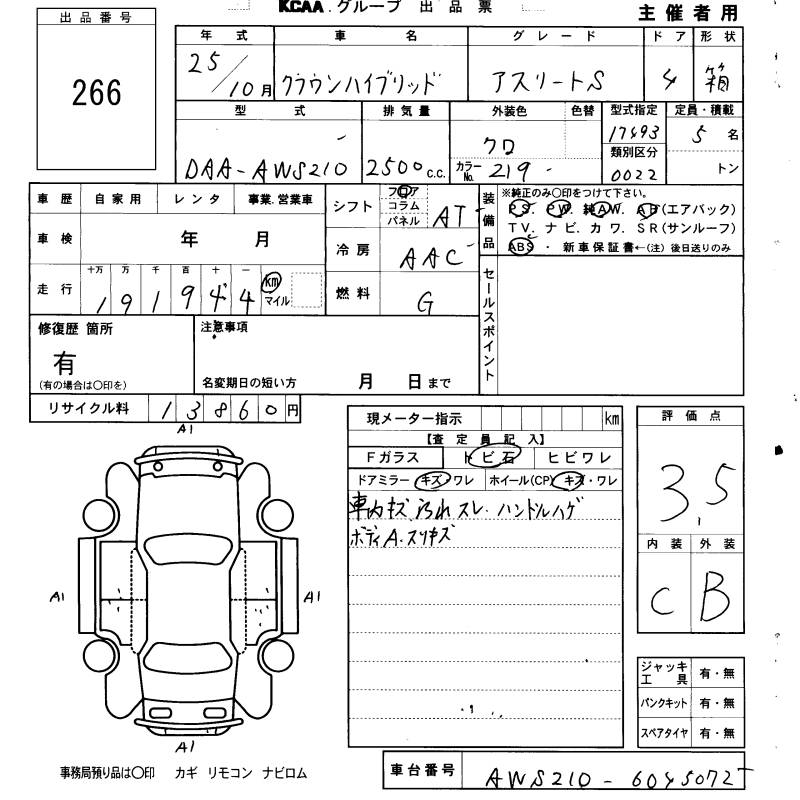 KCAA. グループ 出品票
主催者用
出品番号
266
年式 車名 グレード ドア 形状
25/10月 クラウンハイブリッド アスリートS 4 箱
型式 排気量 外装色 色替 型式指定 定員・積載
17493 5名
クロ
類別区分
DAA-AWS210 2500c.c. カラーNo. 219 0022 トン
車歴 自家用 レンタ 事業.営業車
シフト フロア コラム パネル AT
装備品
※純正のみ〇印をつけて下さい。
PS. PW. 純AW. AB(エアバック)
TV. ナビ. カワ. SR(サンルーフ)
ABS ・ 新車保証書←(注) 後日送りのみ
車検 年 月
冷房 AAC
走行 十万 万 千 百 十 一
191944 km マイル
燃料 G
セールスポイント
修復歴 箇所
有
(有の場合は〇印を)
注意事項
名変期日の短い方 月 日まで
リサイクル料 13860円
現メーター指示 km
【査定員記入】
Fガラス トビ石 ヒビワレ
ドアミラー キズ・ワレ ホイール(CP) キズ・ワレ
車内キズ 汚れ スレ. ハンドルハゲ
ボディA. スリキズ
評価点
3.5
内装 外装
C B
A1
A1
A1
A1
ジャッキ工具 有・無
パンクキット 有・無
スペアタイヤ 有・無
事務局預り品は〇印 カギ リモコン ナビロム
車台番号 AWS210-6045072